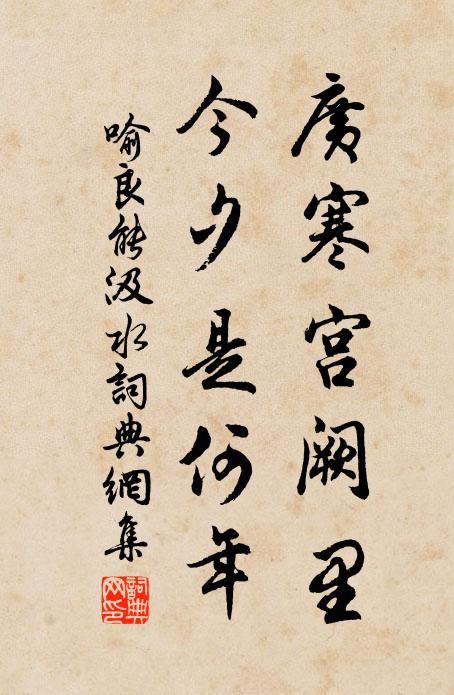 廣寒宫阙里
今夕是何年
喻良能汲水詞典網集
詞典网印